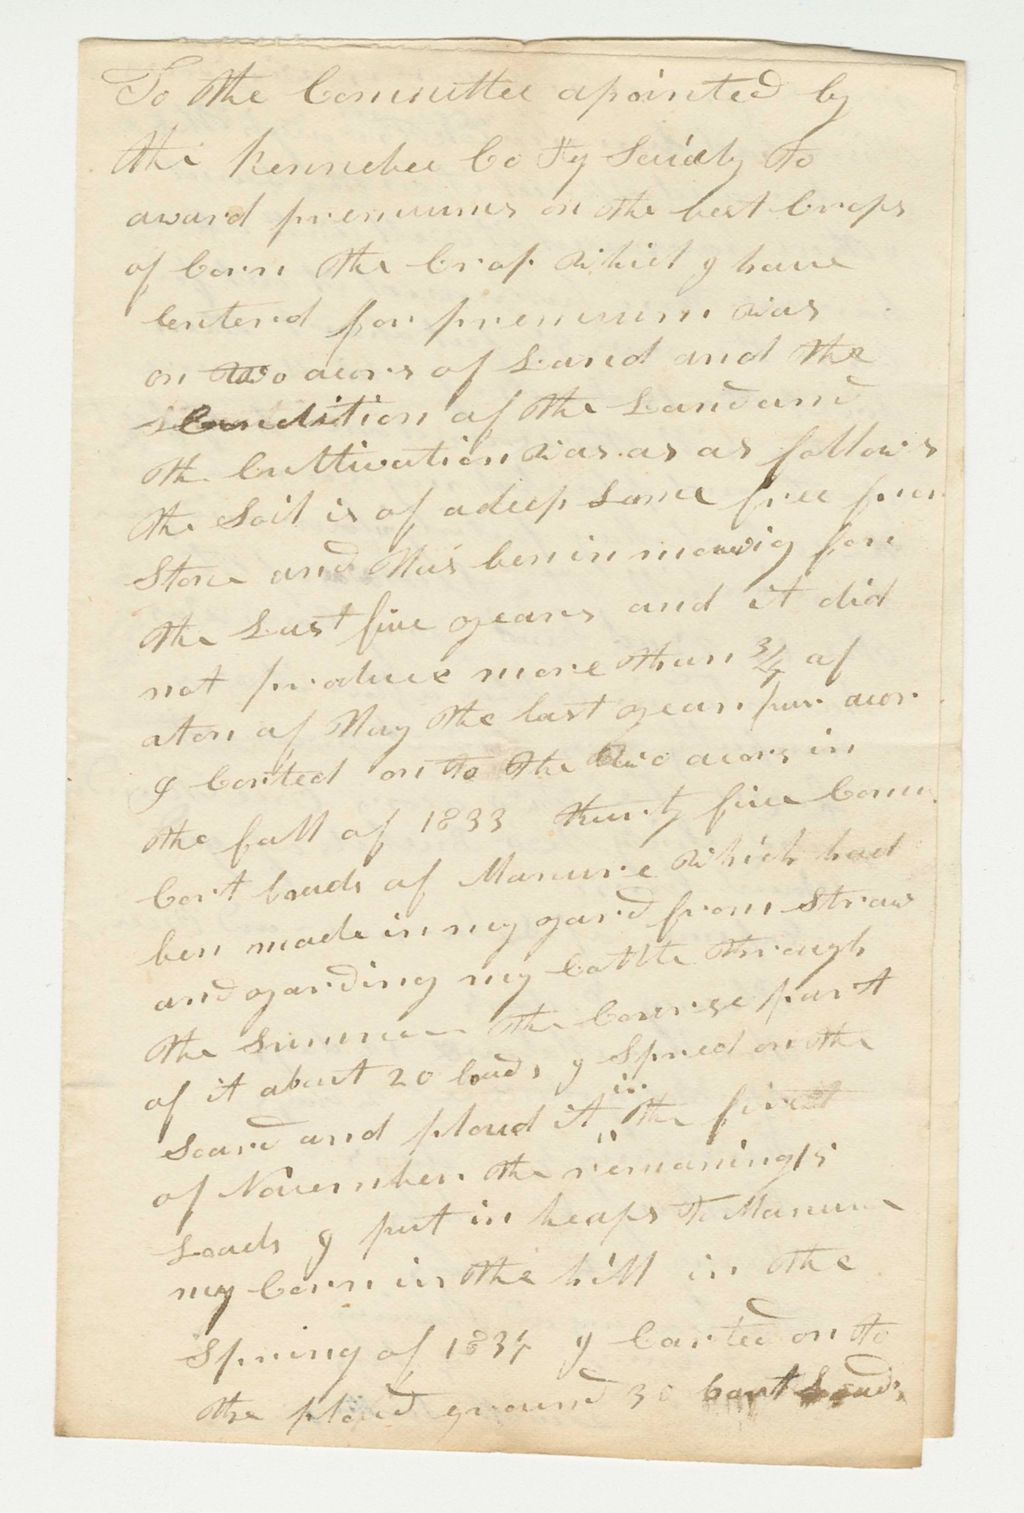 To the Committee apointed by
the Kennebec Co Ag Society to
award premiums on the best Crops
of Corn the Crop which I have
Enterd for premium was
on two acors of Land and the
Condition of the Land and
the Cultivation was as as follows
the Soil is of a deep Lome free from
Stone and has ben in mowing for
the Last five years and it did
not produce more than 3/4 of
a ton of Hay the last year pur acor
I Carted on to the two acors in
the fall of 1833 thurty five Comm
Cart loads of Manure which had
ben made in my yard from Straw
and yarding my Cattle through
the Summer the Course part
of it about 20 loads I Spred on the
Soard and ploud it in the first
of November the remaning 15
Loads I put in heaps to Manure
my Corn in the hill in the
Spring of 1834 I Carted on to
the ploud ground 30 Cart Loads